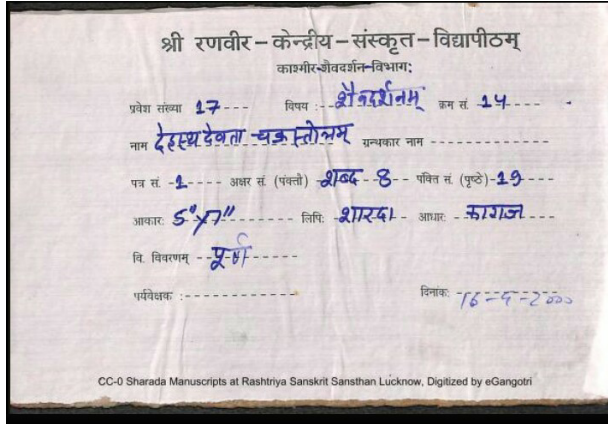 श्री रणवीर – केन्द्रीय – संस्कृत – विद्यापीठम्
काश्मीर-शैवदर्शन-विभाग:
प्रवेश संख्या 17 विषय :- शैवदर्शनम् क्रम सं. 14
नाम देहस्थदेवता चक्रस्तोत्रम् ग्रन्थकार नाम
पत्र सं. 1 अक्षर सं. (पंक्तौ) शब्द 8 पंक्ति सं. (पृष्ठे) 19
आकार: 5"x7" लिपि: शारदा आधार: कागज
वि. विवरणम् पूर्ण
पर्यवेक्षक :
दिनांक: 16-5-2000
CC-0 Sharada Manuscripts at Rashtriya Sanskrit Sansthan Lucknow, Digitized by eGangotri